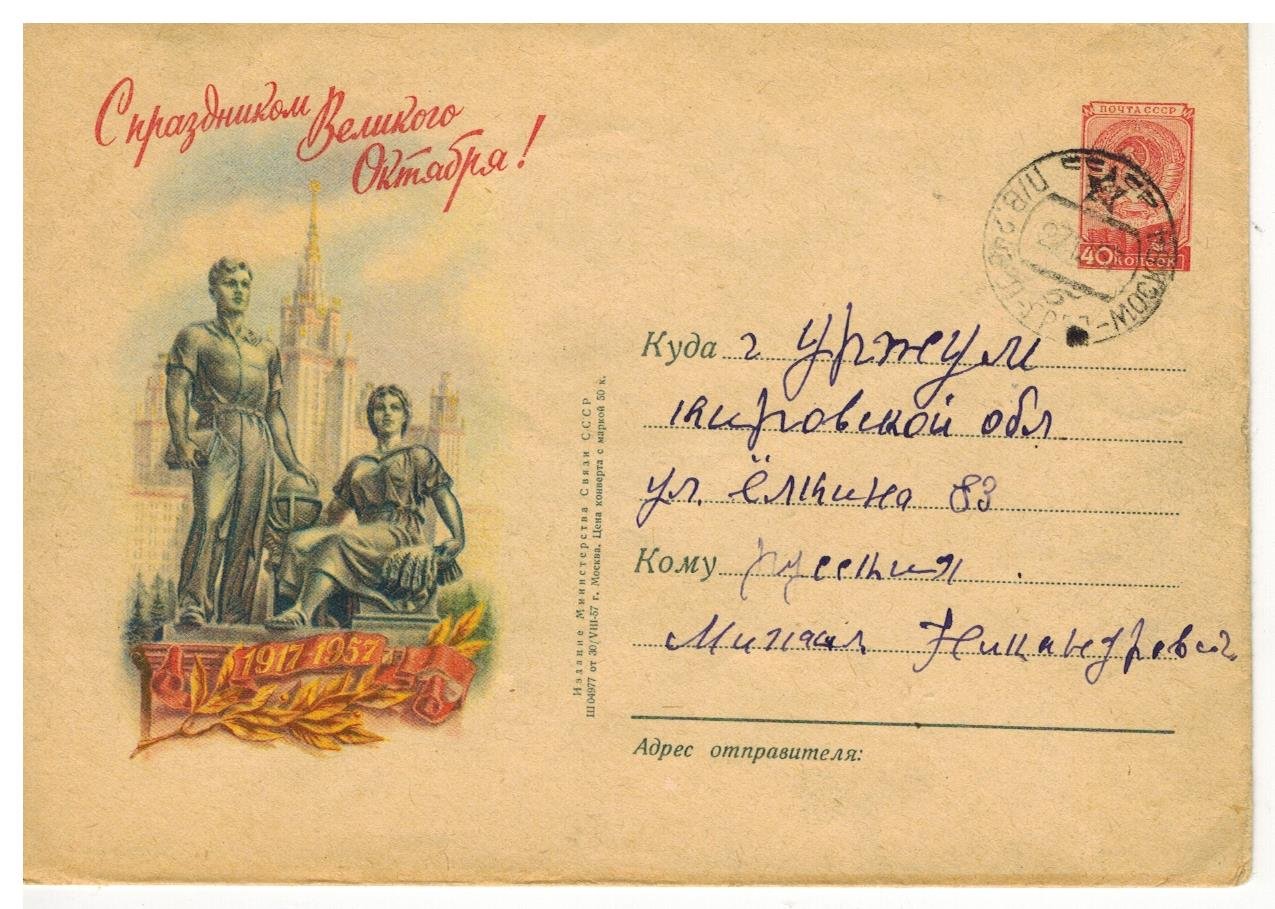 С праздником
Великого
Октября!
ПОЧТА СССР
40 КОПЕЕК
СССР
Куда г Уржум
кировской обл
ул. Ёлкина 83
Кому
Михаил Никандрович
Адрес отправителя:
1917 1957
Издание Министерства Связи СССР
Ш 04977 от 30/VIII-57 г. Москва. Цена конверта с маркой 50 к.